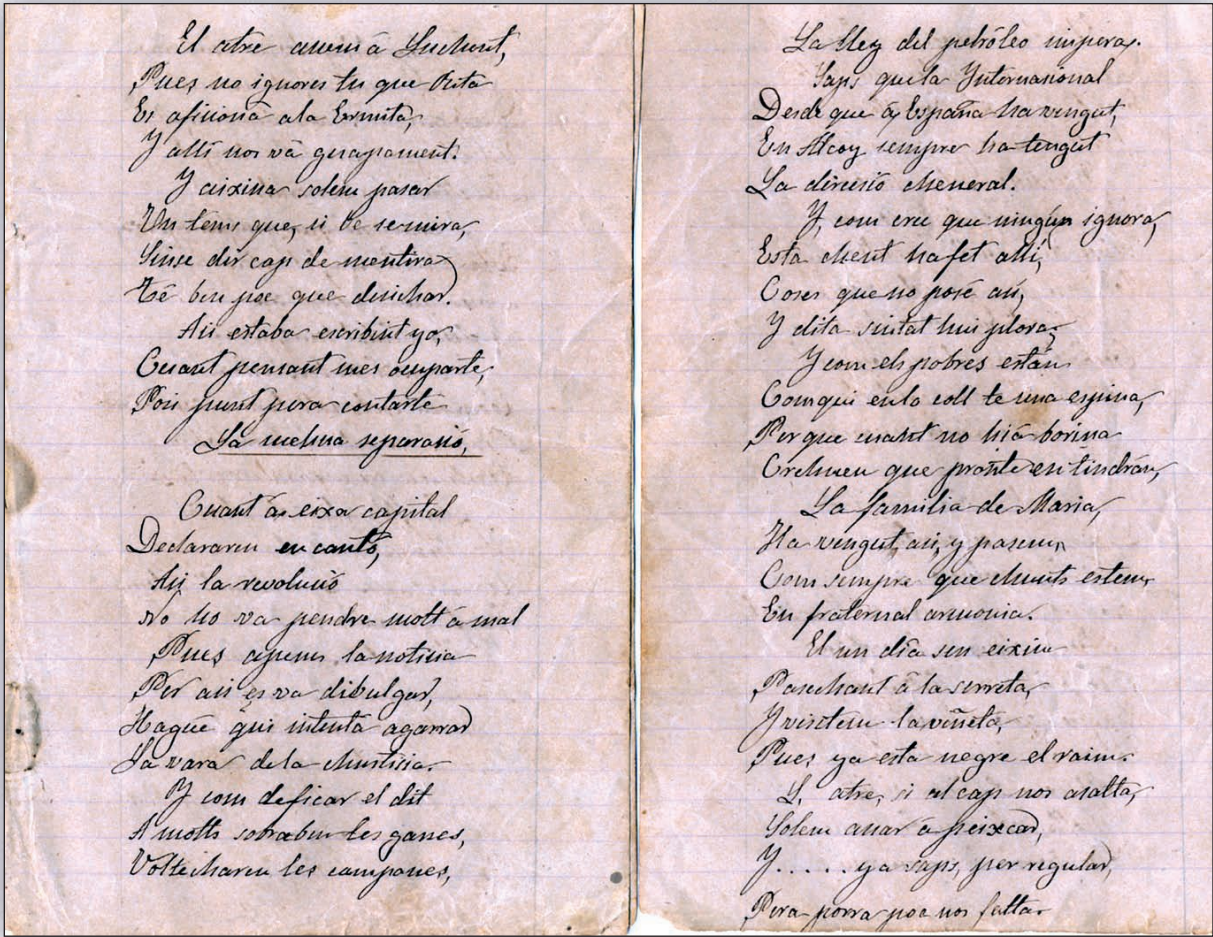 El atre anem á Luchent,
Pues no ignores tu que Rita
Es aficioná a la Ermita,
Y allí nos vá guapament.
Y aixina solem pasar
Un tems que, si be se mira,
Sinse dir cap de mentira
Té ben poc que desichar.
Asi estaba escribint yo,
Cuant pensant mes ocuparte,
Pose punt pera contarte
La mehua separasió,
Cuant á eixa capital
Declararen en cantó,
Asi la revolusió
No ho va pendre molt á mal
Pues apenes la notisia
Per asi es va dibulgar,
Hagué qui intentá agarrar
La vara de la Chustisia.
Y com de ficar el dit
A molts sobraben les ganes,
Voltecharen les campanes,
La lley del petróleo impera.
Saps que la Ynternasional
Desde que á España ha vengut,
En Alcoy sempre ha tengut
La direcsió cheneral.
Y, com crec que ningún ignora,
Esta chent ha fet allí,
Coses que no pose así,
Y dita siutat hui plora;
Y com els pobres están
Com qui en lo coll te una espina,
Perque cuant no hiá borina
Crehuen que pronte en tindrán,
La familia de Maria,
Ha vengut así, y pasem,
Com sempre que chunts estem,
En fraternal armonia.
El un día sen eixim
Pasechant á la serreta,
Y visitem la viñeta,
Pues ya esta negre el raim.
L' atre, si al cap nos asalta,
Solem anar á peixcar,
Y.....ya saps, per regular,
Pera porra poc nos falta.